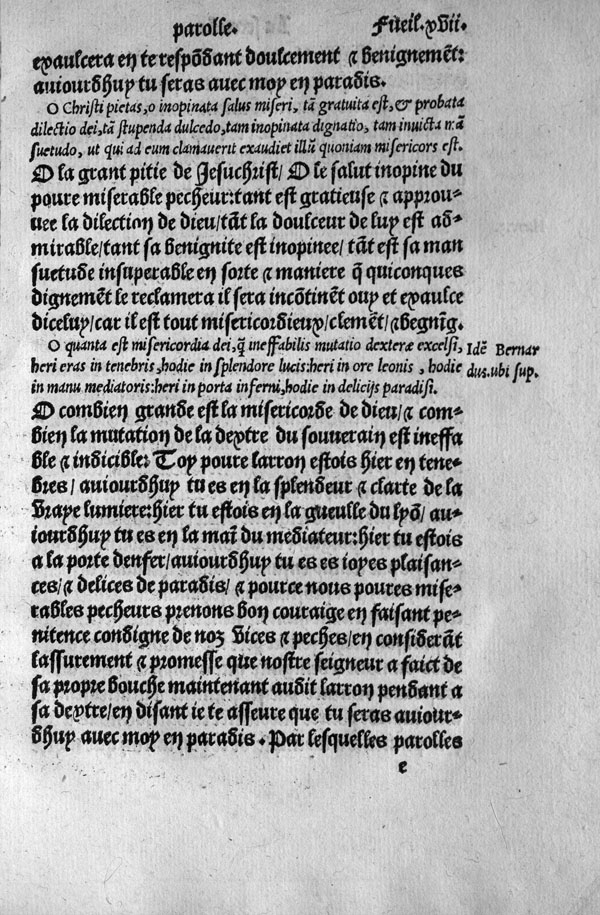 parolle. Fueil.xvii.
exaulcera en te respõdant doulcement & benignemẽt:
auiourdhuy tu seras auec moy en paradis.
O Christi pietas, o inopinata salus miseri, tã gratuita est, & probata
dilectio dei, tã stupenda dulcedo, tam inopinata dignatio, tam inuicta mã
suetudo, ut qui ad eum clamauerit exaudiet illũ quoniam misericors est.
O la grant pitie de Jesuchrist/ O le salut inopine du
poure miserable pecheur: tant est gratieuse & approu-
uee la dilection de dieu/ tãt la doulceur de luy est ad-
mirable/ tant sa benignite est inopinee/ tãt est sa man
suetude insuperable en sorte & maniere q̃ quiconques
dignemẽt le reclamera il sera incõtinẽt ouy et exaulce
diceluy/ car il est tout misericordieux/ clemẽt/ & begnĩg.
O quanta est misericordia dei, q̃ ineffabilis mutatio dexteræ excelsi,
heri eras in tenebris, hodie in splendore lucis: heri in ore leonis, hodie
in manu mediatoris: heri in porta inferni, hodie in delicijs paradisi.
Idẽ Bernar
dus. ubi sup.
O combien grande est la misericorde de dieu/ & com-
bien la mutation de la dextre du souuerain est ineffa
ble & indicible: Toy poure larron estois hier en tene-
bres/ auiourdhuy tu es en la splendeur & clarte de la
vraye lumiere: hier tu estois en la gueulle du lyõ/ au-
iourdhuy tu es en la maĩ du mediateur: hier tu estois
a la porte denfer/ auiourdhuy tu es es ioyes plaisan-
ces/ & delices de paradis/ & pource nous poures mise-
rables pecheurs prenons bon couraige en faisant pe-
nitence condigne de noz vices & peches/ en considerãt
lassurement & promesse que nostre seigneur a faict de
sa propre bouche maintenant audit larron pendant a
sa dextre/ en disant ie te asseure que tu seras auiour-
dhuy auec moy en paradis. Par lesquelles parolles
e